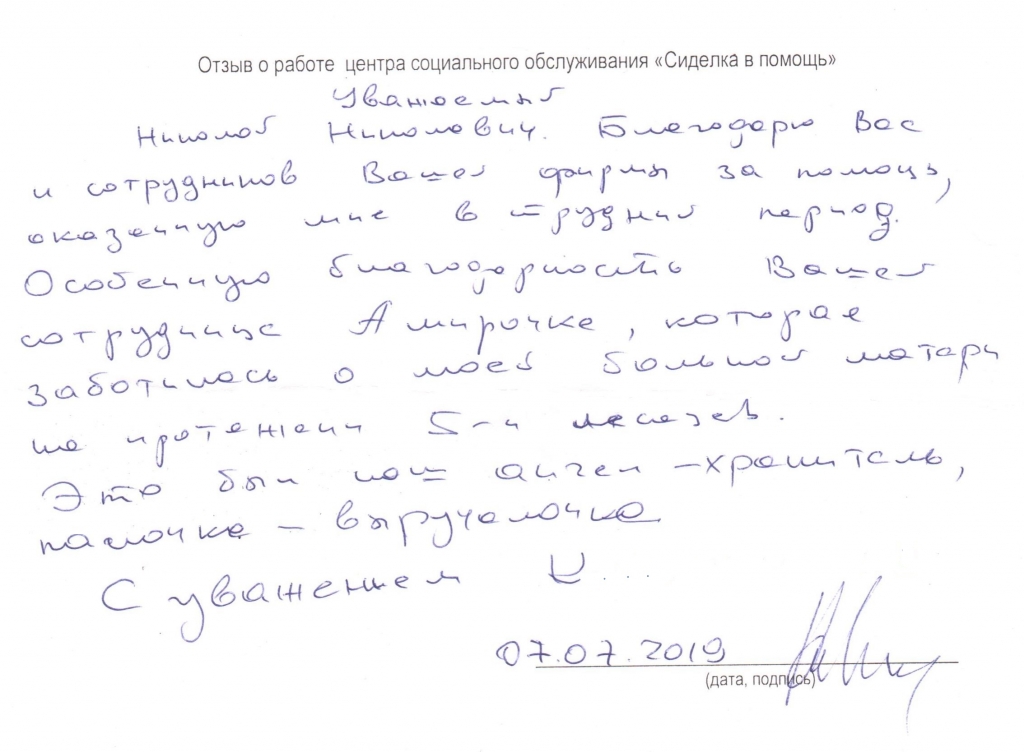 Отзыв о работе центра социального обслуживания «Сиделка в помощь»
Уважаемый
Николай Николаевич. Благодарю Вас
и сотрудников Вашей фирмы за помощь,
оказанную мне в трудный период.
Особенную благодарность Вашей
сотруднице Амирочке, которая
заботилась о моей больной матери
на протяжении 5-и месяцев.
Это был наш ангел-хранитель,
палочка - выручалочка
С уважением
07.07.2019
(дата, подпись)